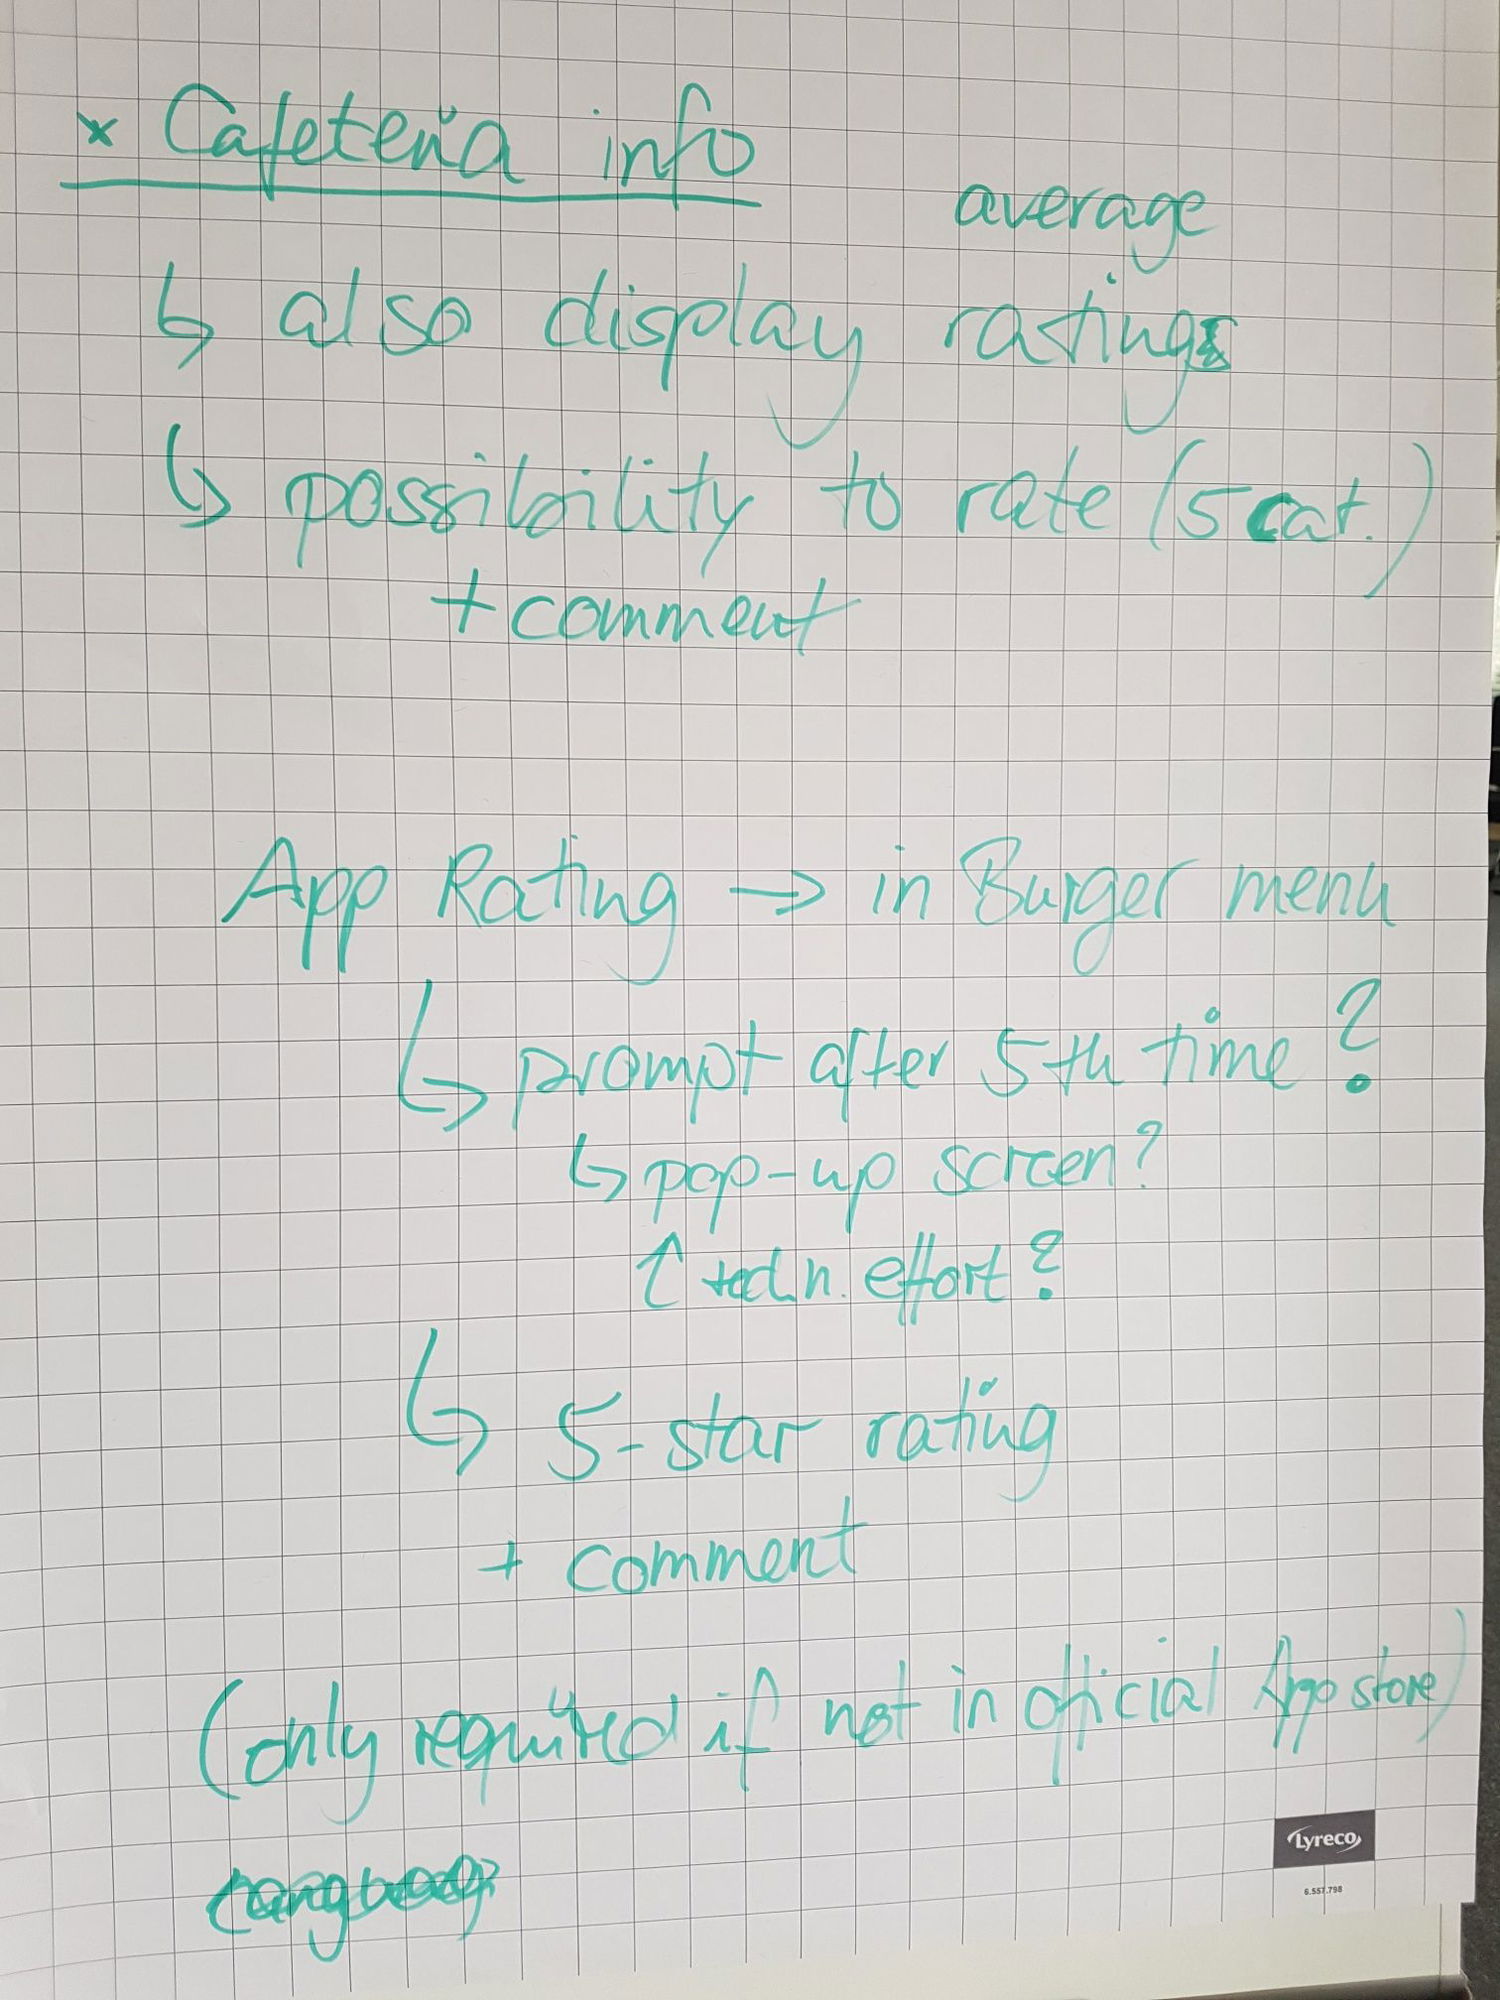 x Cafeteria info
average
↳ also display rating
↳ possibility to rate (5 cat.)
+ comment
App Rating → in Burger menu
↳ prompt after 5th time?
↳ pop-up screen?
↑ techn. effort?
↳ 5-star rating
+ comment
(only required if not in official App store)
Lyreco
6.557.798